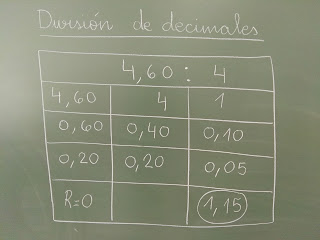 División de decimales
4,60 : 4
4,60 4 1
0,60 0,40 0,10
0,20 0,20 0,05
R=0 1,15